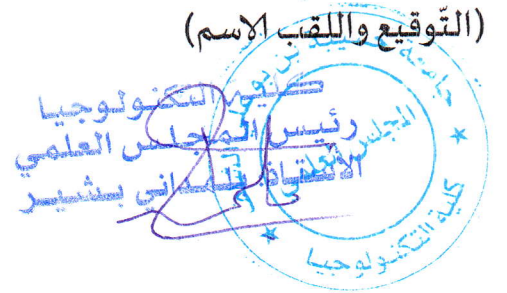 (التّوقيع واللقب الاسم)
كلية التكنولوجيا
رئيس المجلس العلمي
الأستاذ تلمساني بشير
جامعة حسيبة بن
المجلس العلمي
كلية التكنولوجيا